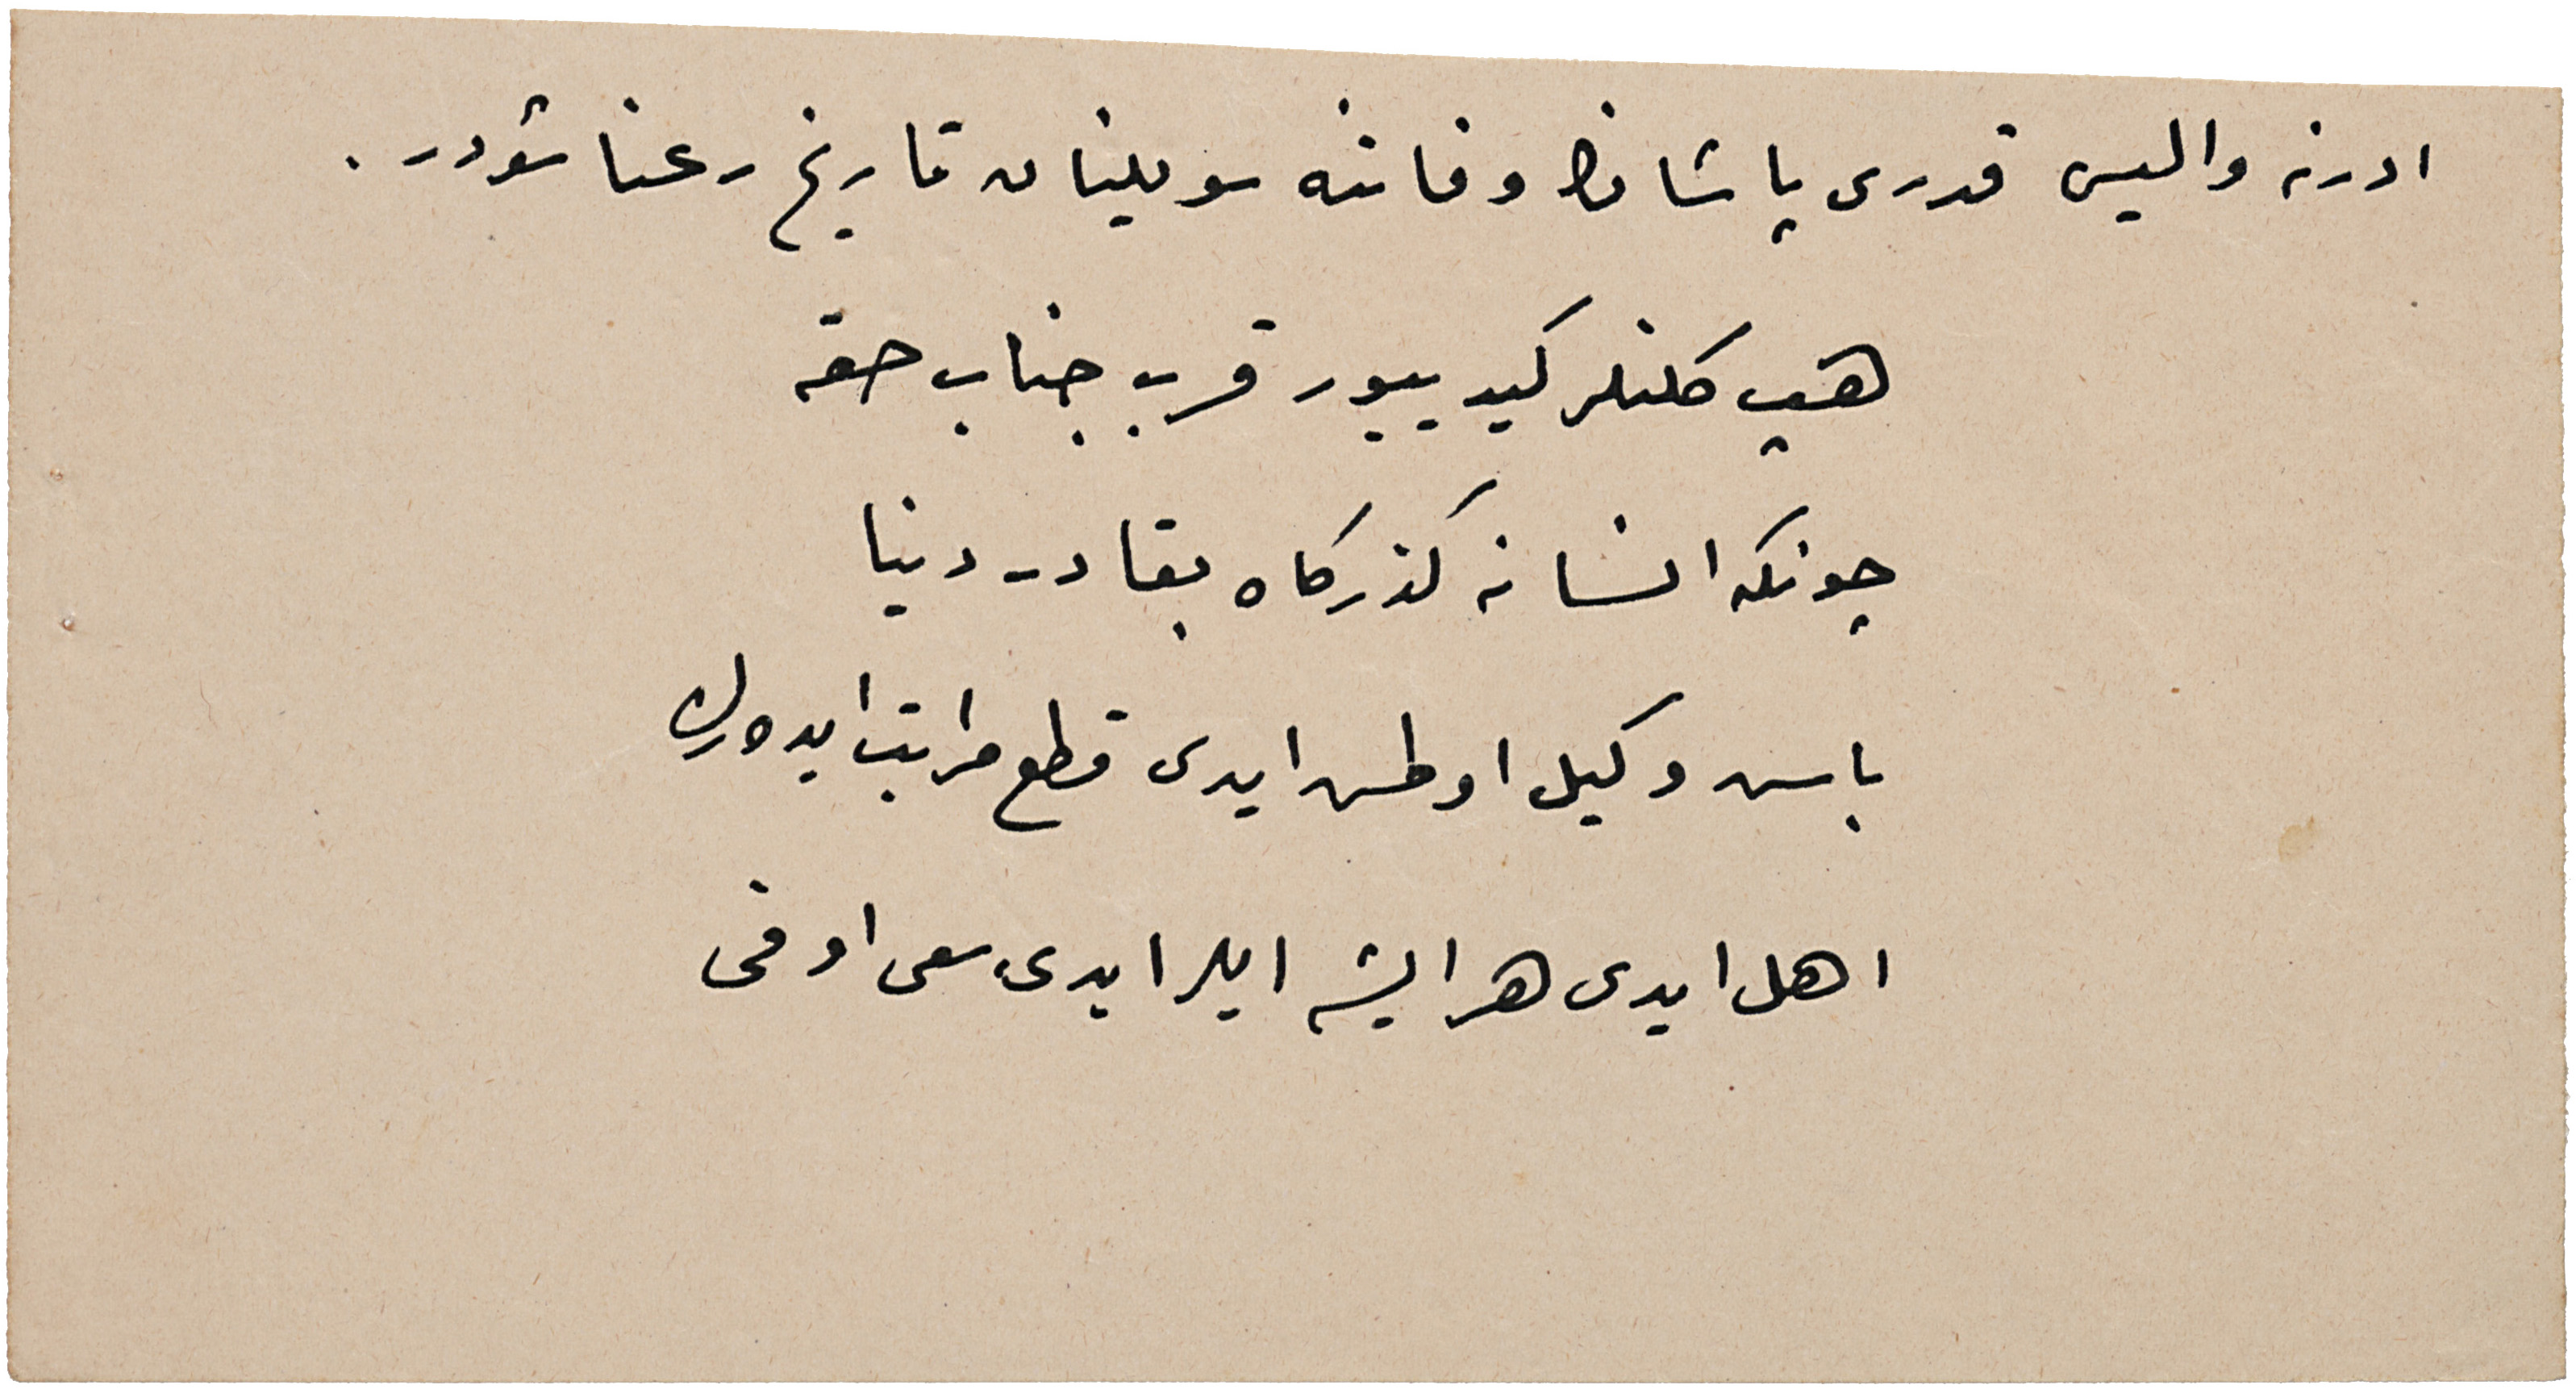 ادرنه والیسی قدری پاشانك وفاتنه سویلینان تاریخ رعنا شودر.
هپ كلنلر كیدییور قرب جناب حقه
چونكه انسانه كذركاه بقادر دنیا
باش وكیل اولمش ایدی قطع مراتب ایده رك
اهل ایدی هر ایشه ایلر ایدی سعی اوفی